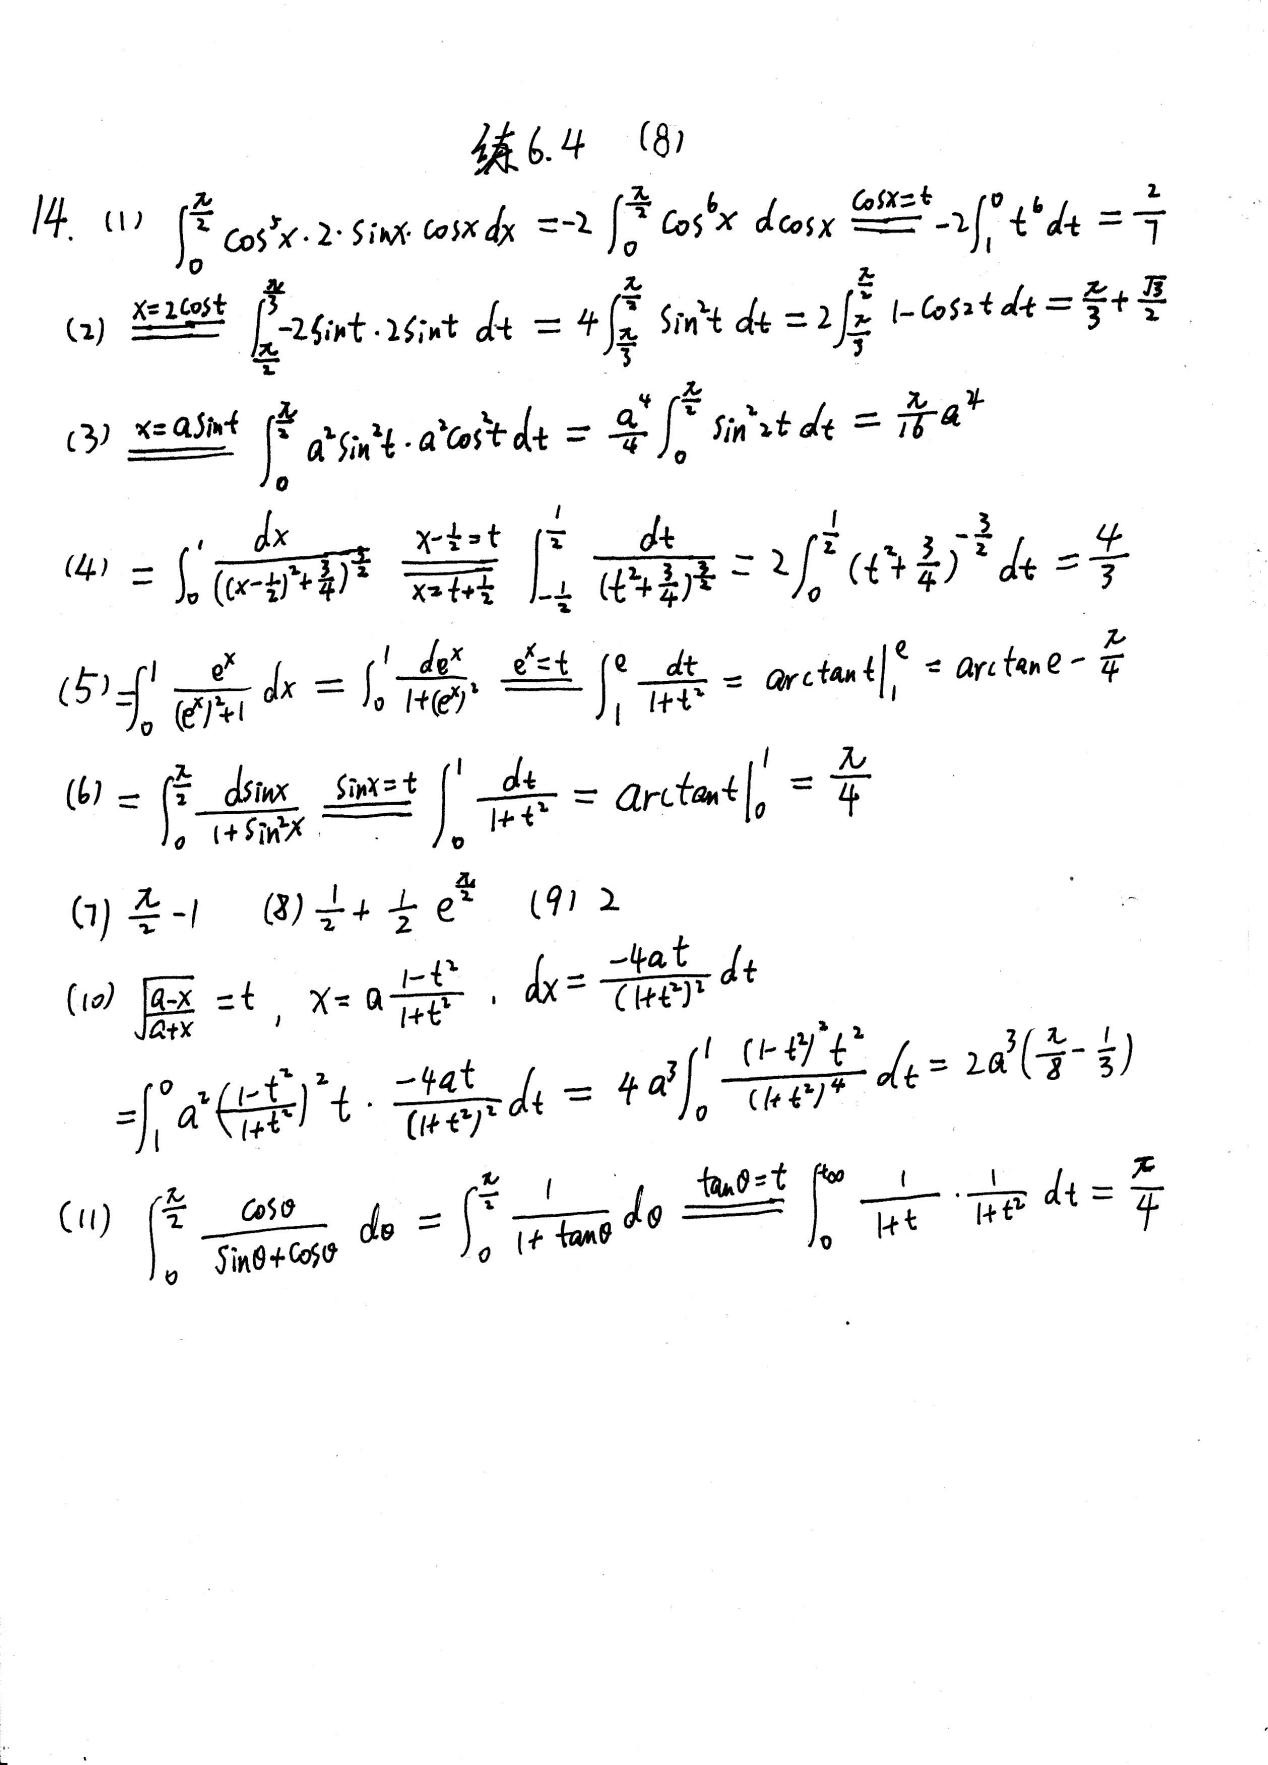 练6.4 (8)
14. (1) ∫₀^{π/2} cos⁵x·2·sinx·cosx dx = -2 ∫₀^{π/2} cos⁶x dcosx \overset{cosx=t}{=} -2∫₁⁰ t⁶dt = 2/7
(2) \overset{x=2cost}{=} ∫_{π/2}^{π/3} -2sint·2sint dt = 4∫_{π/3}^{π/2} sin²t dt = 2∫_{π/3}^{π/2} 1-cos2t dt = π/3 + √3/2
(3) \overset{x=asint}{=} ∫₀^{π/2} a²sin²t·a²cos²t dt = a⁴/4 ∫₀^{π/2} sin²2t dt = π/16 a⁴
(4) = ∫₀¹ dx/((x-1/2)²+3/4)^{3/2} \overset{x-1/2=t}{\underset{x=t+1/2}{=}} ∫_{-1/2}^{1/2} dt/(t²+3/4)^{3/2} = 2∫₀^{1/2} (t²+3/4)^{-3/2} dt = 4/3
(5) = ∫₀¹ e^x/((e^x)²+1) dx = ∫₀¹ de^x/(1+(e^x)²) \overset{e^x=t}{=} ∫₁^e dt/(1+t²) = arctant|₁^e = arctane - π/4
(6) = ∫₀^{π/2} dsinx/(1+sin²x) \overset{sinx=t}{=} ∫₀¹ dt/(1+t²) = arctant|₀¹ = π/4
(7) π/2 -1 (8) 1/2 + 1/2 e^{π/2} (9) 2
(10) √((a-x)/(a+x)) = t, x = a (1-t²)/(1+t²). dx = -4at/(1+t²)² dt
= ∫₁⁰ a²((1-t²)/(1+t²))² t · -4at/(1+t²)² dt = 4a³∫₀¹ (1-t²)²t²/(1+t²)⁴ dt = 2a³(π/8 - 1/3)
(11) ∫₀^{π/2} cosθ/(sinθ+cosθ) dθ = ∫₀^{π/2} 1/(1+tanθ) dθ \overset{tanθ=t}{=} ∫₀^{+∞} 1/(1+t) · 1/(1+t²) dt = π/4